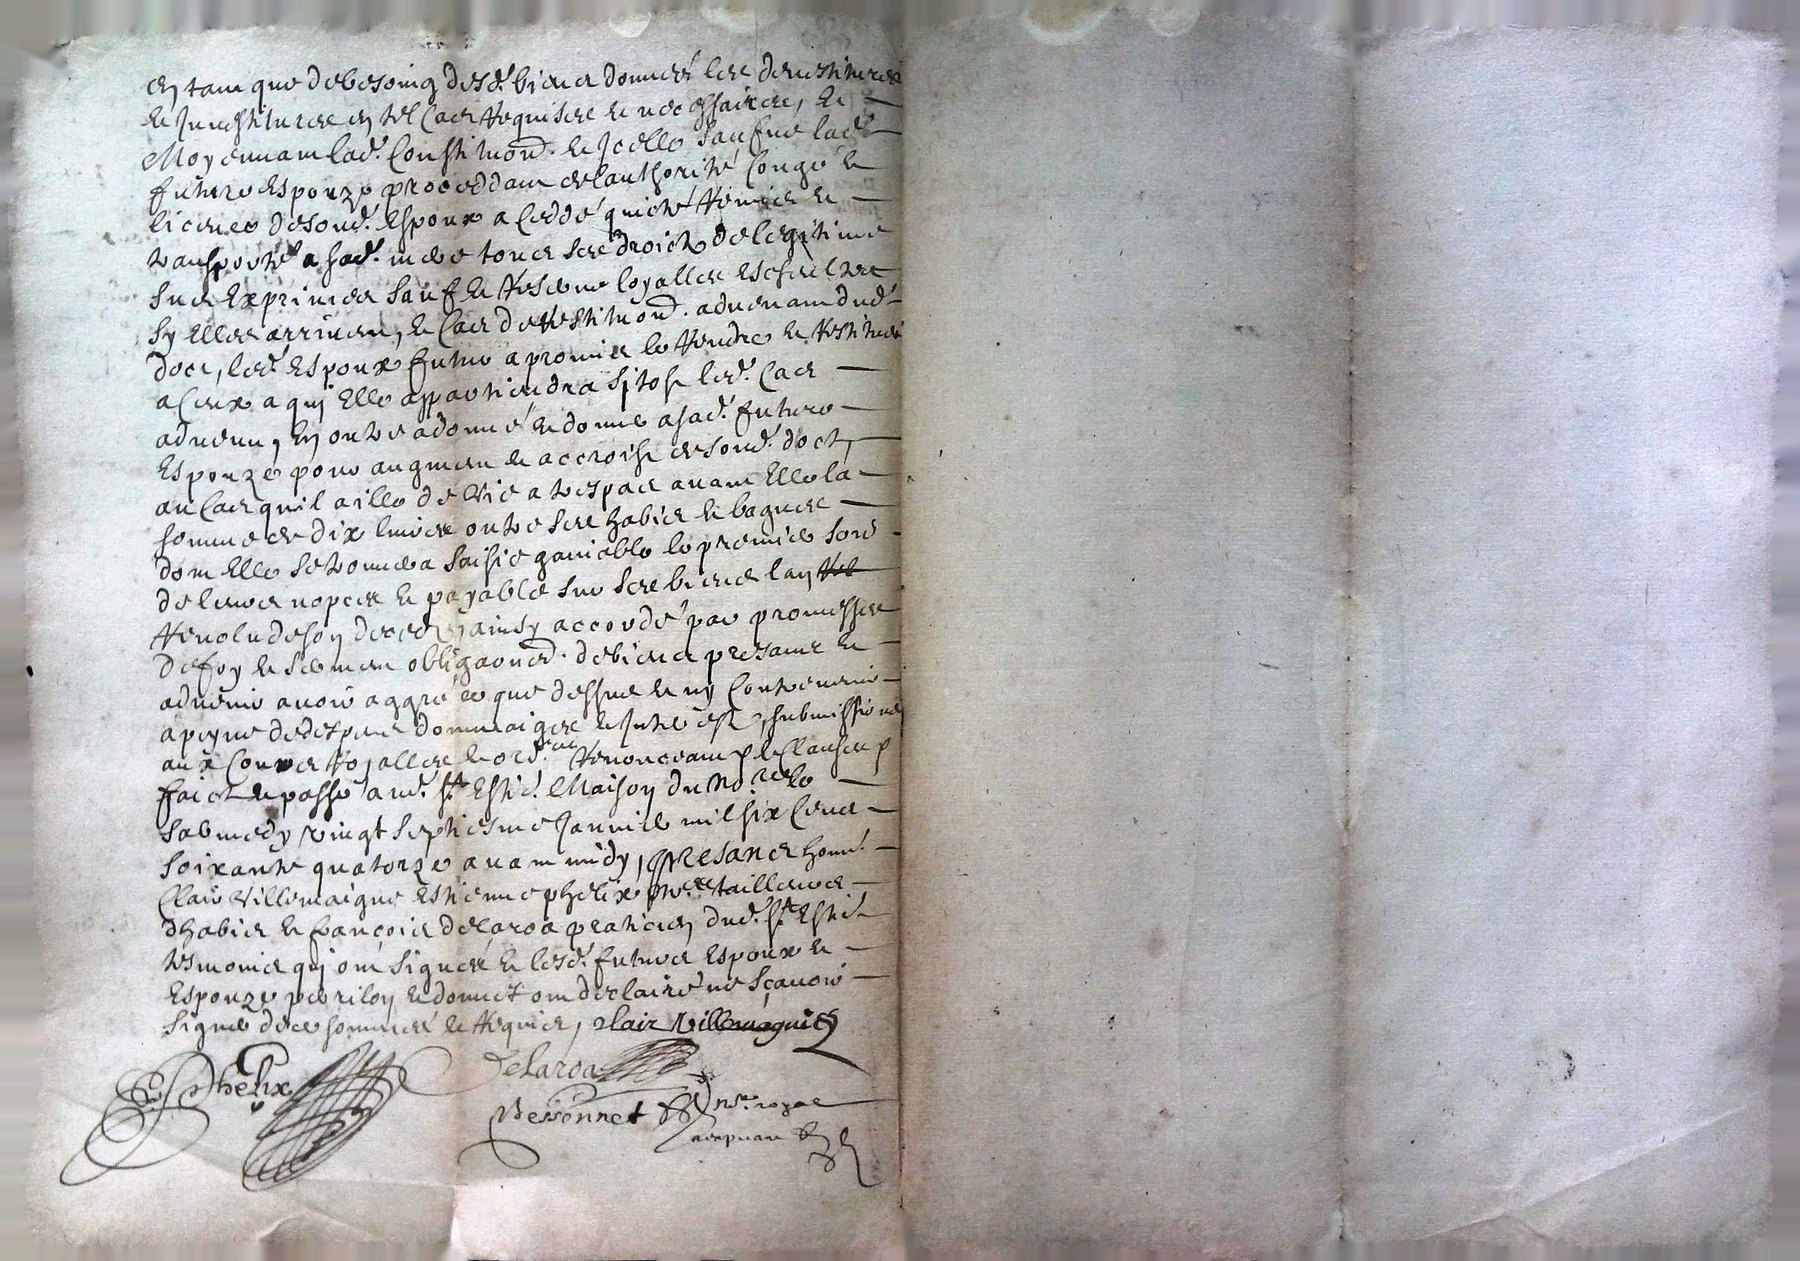 en tant que de besoing desd. biens donnés les devestitures
et Investitures en tel cas requises et necessaires, et
Moyennant lad. Constituon. et Icelle sauſve lad.
future espouze proceddant de lauthorité congé et
licence desond. Espoux a ceddé quicté remis et
transporté a sad. mere tous ses droicts de legitime
sus exprimés sauf et reserve loyalles escheultes
sy Elles arrivent, et cas de restituon. advenant dud.
doct, led. espoux futur a promis le rendre et restituer
a ceux a quj Elle appartiendra sitost led. cas
advenu, En outre a donné et donne a sad. future
Espouze pour augment et accroist de sond. doct,
au cas quil aille de vie a trespas avant Elle la
somme de dix livres outre ses habits et bagues
dont Elle se trouvera saisie ganiable le premier soir
de leurs nopces et payable sur ses biens lan
revolu de son deces, ainsy accordé par promesses
de foy et serment obligaoned. de biens presants et
advenir avoir aggré ce que dessus et ny contrevenir
a peyne de despens dommaiges et Intherests, submissions
aux Cours royalles et ord.res renonceant p et Clauses p
faict et passé aud. st. Esti.e Maison du No.re le
sabmedy vingt septiesme Janvier mil six cens
soixante quatorze avant midy, presans honn.
Clair Villemaigne Estienne phelix m.res tailleurs
dhabits et françois delaroa praticien dud. st. Esti.
tesmoins quj ont signés et lesd. futurs Espoux et
Espouze perilon et donnet ont declairé ne sçavoir
signer de ce sommés et requis, clair Villemagnie
E Phelix
Delaroa
Bessonnet no.re royal